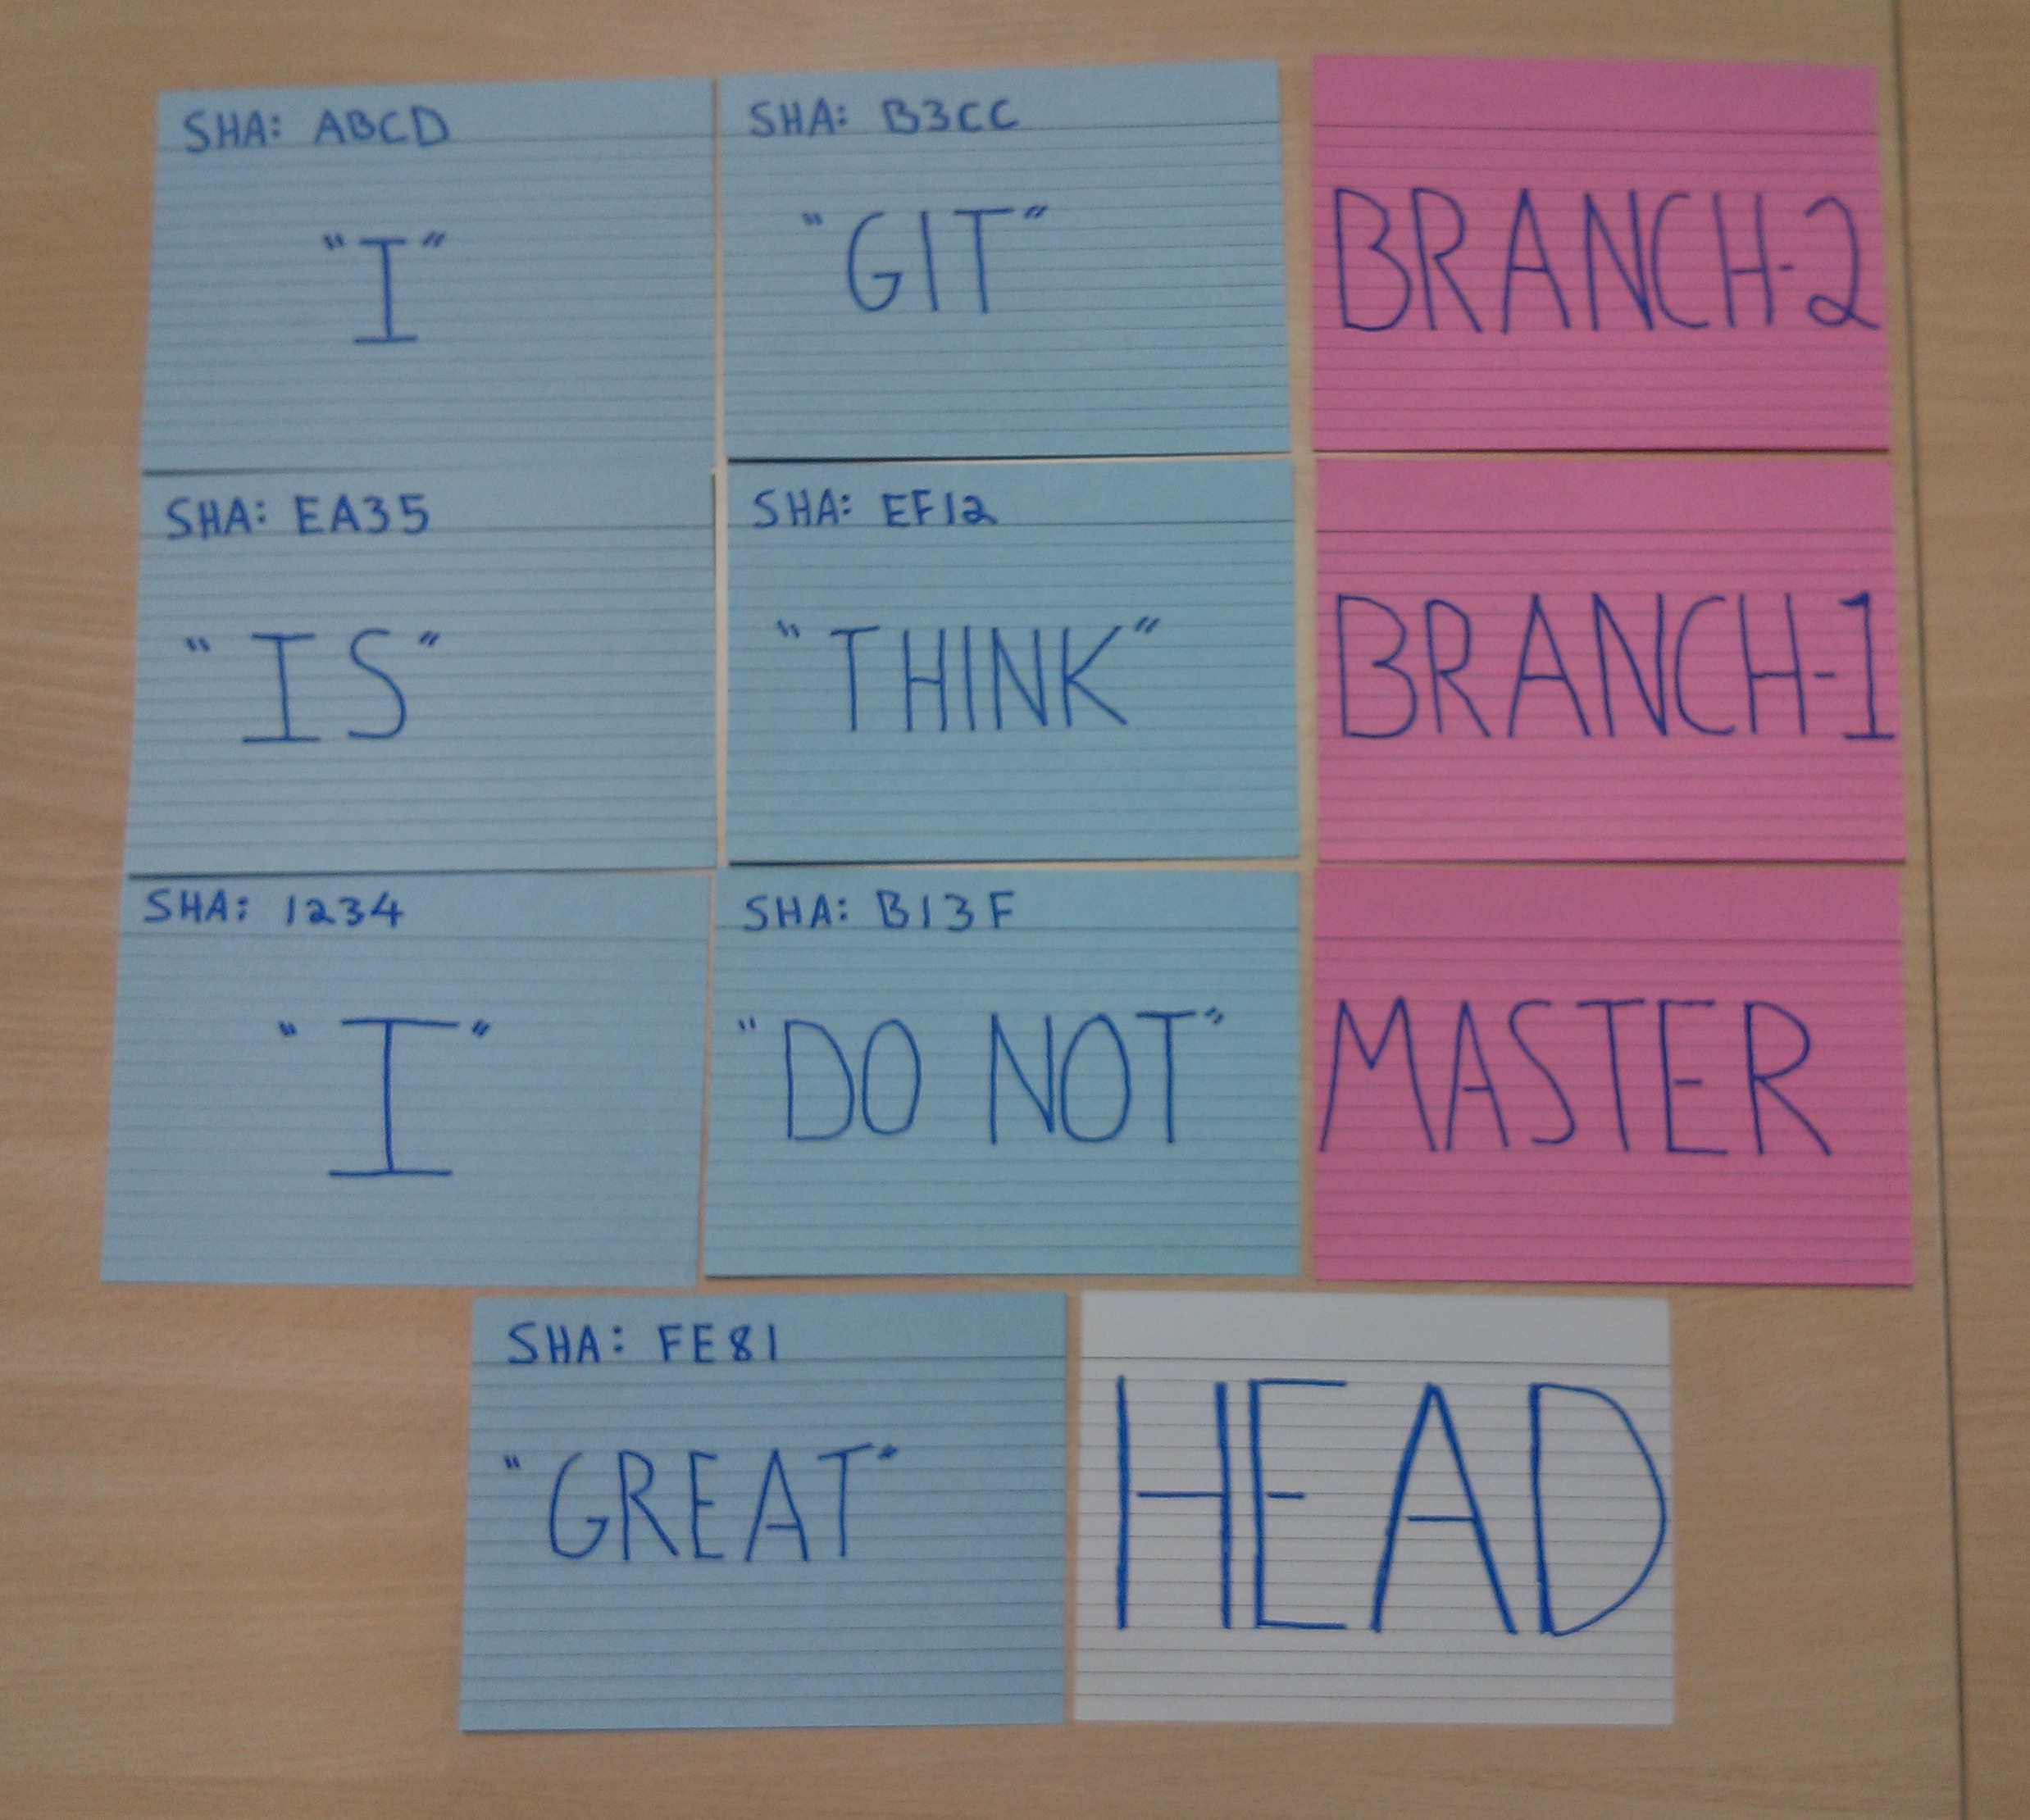 SHA: ABCD
"I"
SHA: B3CC
"GIT"
BRANCH-2
SHA: EA35
"IS"
SHA: EF12
"THINK"
BRANCH-1
SHA: 1234
"I"
SHA: B13F
"DO NOT"
MASTER
SHA: FE81
"GREAT"
HEAD